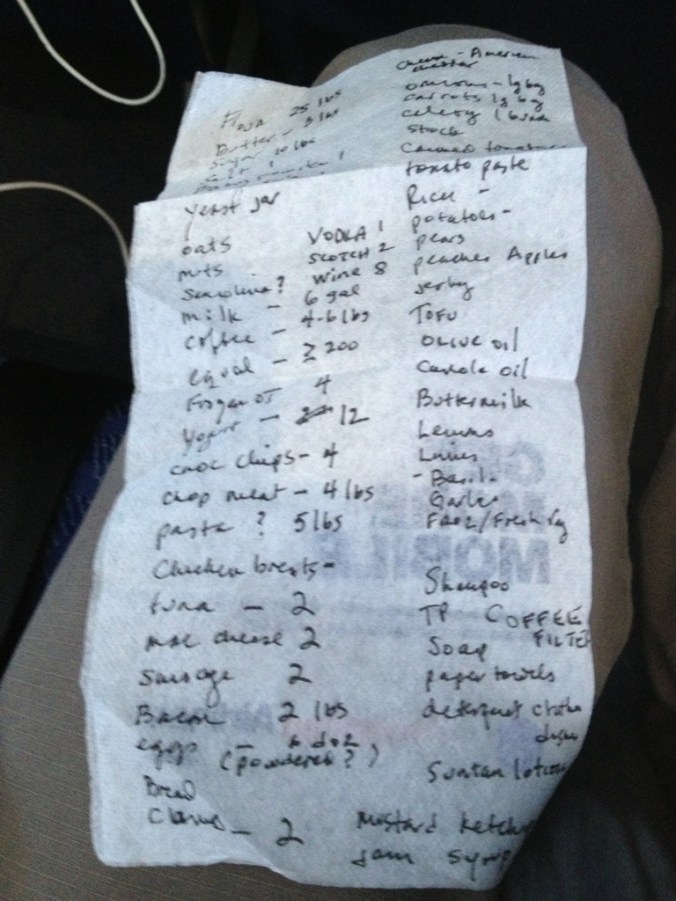 Flour 25 lbs
Butter - 5 lbs
Sugar 10 lbs
Salt 1
Yeast jar
oats
nuts
Semolina?
milk - 6 gal
coffee - 4-6 lbs
equal - ≥ 200
Frozen OJ 4
Yogurt - 12
choc chips - 4
chop meat - 4 lbs
pasta ? 5 lbs
Chicken brests -
tuna - 2
mac cheese 2
Sausage 2
Bacon 2 lbs
eggs - 6 doz
(powdered?)
Bread
Clams - 2
VODKA 1
SCOTCH 2
wine 8
cheese - American
cheddar
onions - lg bag
carrots lg bag
celery 1 bunch
stock
Canned tomatoes
tomato paste
Rice -
potatoes -
pears
peaches Apples
jerky
TOFU
OLIVE oil
Canola oil
Buttermilk
Lemons
Limes
- Basil
Garlic
Froz/Fresh veg
Shampoo
TP COFFEE
FILTER
Soap
paper towels
detergent clothes
dishes
Suntan lotion
Mustard ketchup
Jam syrup